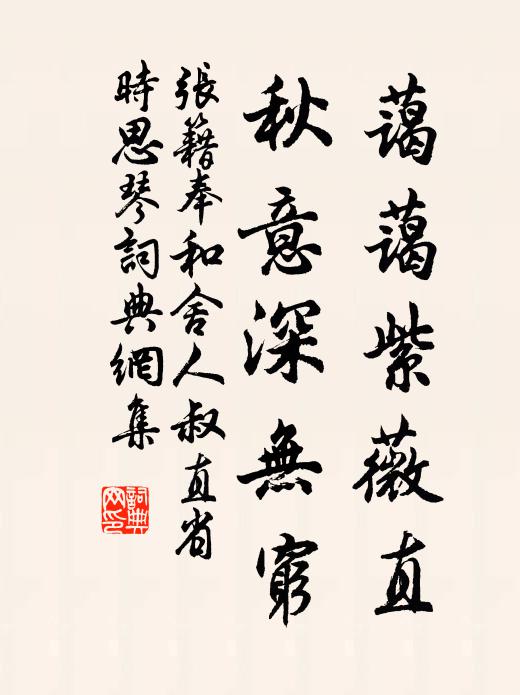 藹藹紫薇直
秋意深無窮
張籍奉和舍人叔直省
時思琴詞典網集
詞典
网印